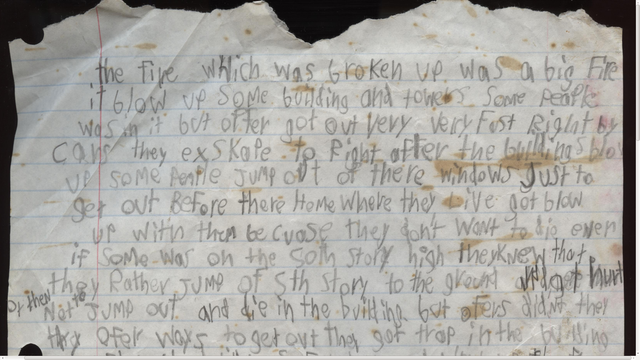 the fire which was broken up was a big Fire
it blow up some building and towers some people
was in it but ofter got out very very Fast Right by
Cars they exskape to Right after the buildings blow
up some People jump out of there windows Just to
get out BeFore there Home where they Live got blow
up with them be cuase they don't want to die even
if some was on the 50th story high they knew that
they Rather Jump of 5th story to the ground and get hurt
or then Not to Jump out and die in the building but ofers didn't they
they ofer ways to get out they got trap in the building